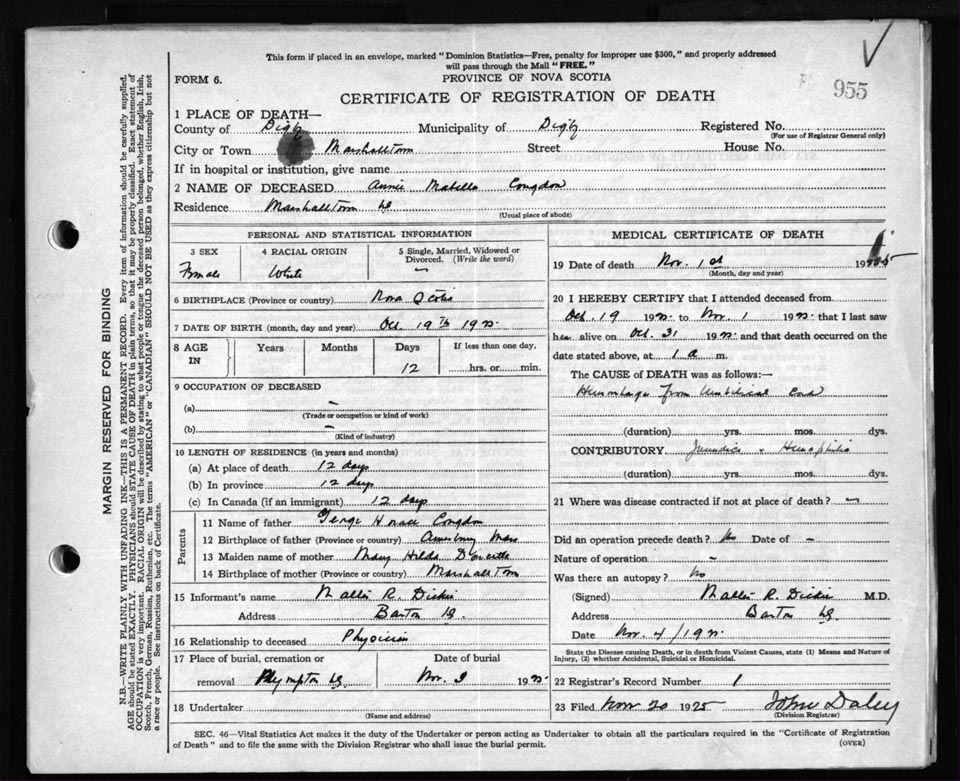 This form if placed in an envelope, marked "Dominion Statistics—Free, penalty for improper use $300," and properly addressed
will pass through the Mail "FREE."
FORM 6.
PROVINCE OF NOVA SCOTIA
955
CERTIFICATE OF REGISTRATION OF DEATH
1 PLACE OF DEATH—
County of Digby Municipality of Digby Registered No.
(For use of Registrar General only)
City or Town Marshalltown Street House No.
If in hospital or institution, give name
2 NAME OF DECEASED Annie Mabella Congdon
Residence Marshalltown
(Usual place of abode)
PERSONAL AND STATISTICAL INFORMATION
3 SEX 4 RACIAL ORIGIN 5 Single, Married, Widowed or Divorced. (Write the word)
Female White —
6 BIRTHPLACE (Province or country) Nova Scotia
7 DATE OF BIRTH (month, day and year) Oct. 19th
8 AGE IN Years Months Days If less than one day,
12 hrs. or min.
9 OCCUPATION OF DECEASED
(a) —
(Trade or occupation or kind of work)
(b) —
(Kind of industry)
10 LENGTH OF RESIDENCE (in years and months)
(a) At place of death 12 days
(b) In province 12 days
(c) In Canada (if an immigrant) 12 days
Parents
11 Name of father George Horace Congdon
12 Birthplace of father (Province or country) Amesbury Mass
13 Maiden name of mother Mary Hilda
14 Birthplace of mother (Province or country) Marshalltown
15 Informant's name R. Dickie
Address Barton
16 Relationship to deceased Physician
17 Place of burial, cremation or Date of burial
removal Plympton Nov. 3 19
18 Undertaker
(Name and address)
MEDICAL CERTIFICATE OF DEATH
19 Date of death Nov. 1st
(Month, day and year)
20 I HEREBY CERTIFY that I attended deceased from
Oct. 19 19 to Nov. 1 19 that I last saw
her alive on Oct. 31 19 and that death occurred on the
date stated above, at 1 a m.
The CAUSE of DEATH was as follows:—
Hemorrhage from Umbilical Cord
(duration) yrs. mos. dys.
CONTRIBUTORY Jaundice & Hemophilia
(duration) yrs. mos. dys.
21 Where was disease contracted if not at place of death? —
Did an operation precede death? No Date of —
Nature of operation —
Was there an autopsy? No
(Signed) R. Dickie M.D.
Address Barton
Date Nov. 4/19
State the Disease causing Death, or in death from Violent Causes, state (1) Means and Nature of
Injury, (2) whether Accidental, Suicidal or Homicidal.
22 Registrar's Record Number 1
23 Filed Nov 20 1925 John Daley
(Division Registrar)
SEC. 46—Vital Statistics Act makes it the duty of the Undertaker or person acting as Undertaker to obtain all the particulars required in the "Certificate of Registration
of Death" and to file the same with the Division Registrar who shall issue the burial permit.
(OVER)
MARGIN RESERVED FOR BINDING
N.B.—WRITE PLAINLY WITH UNFADING INK—THIS IS A PERMANENT RECORD. Every item of information should be carefully supplied.
AGE should be stated EXACTLY. PHYSICIANS should STATE CAUSE OF DEATH in plain terms, so that it may be properly classified. Exact statement of
OCCUPATION is very important. RACIAL ORIGIN will be described by stating to what people or tongue the deceased person belonged, whether English, Irish,
Scotch, French, German, Russian, Ruthenian, etc. The terms "AMERICAN" or "CANADIAN" SHOULD NOT BE USED as they express citizenship but not
a race or people. See instructions on back of Certificate.